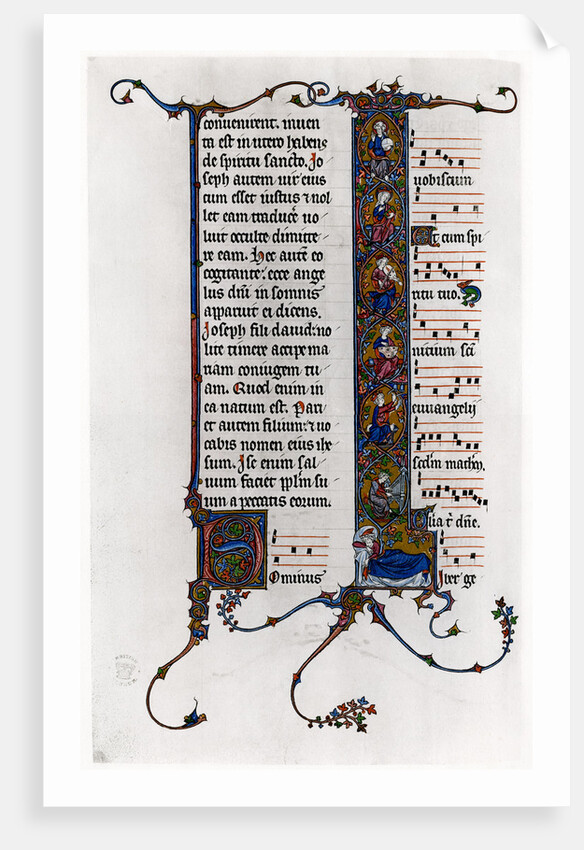 convenirent. inven
ta est in utero habens
de spiritu sancto. Jo
seph autem vir eius
cum esset iustus & nol
let eam traducere vo
luit occulte dimitte
re eam. Hec autem eo
cogitante: ecce ange
lus dni in somnis
apparuit ei dicens.
Joseph fili david: no
lite timere accipe ma
riam coniugem tu
am. Quod enim in
ea natum est. Pari
et autem filium: & vo
cabis nomen eius ihe
sum. Ise enim sal
vum faciet pplm su
um a peccatis eorum.
Dominus
vobiscum
Et cum spi
ritu tuo.
Inicium sci
euuangelij
scdm matheu.
Glia t dne.
Liber ge